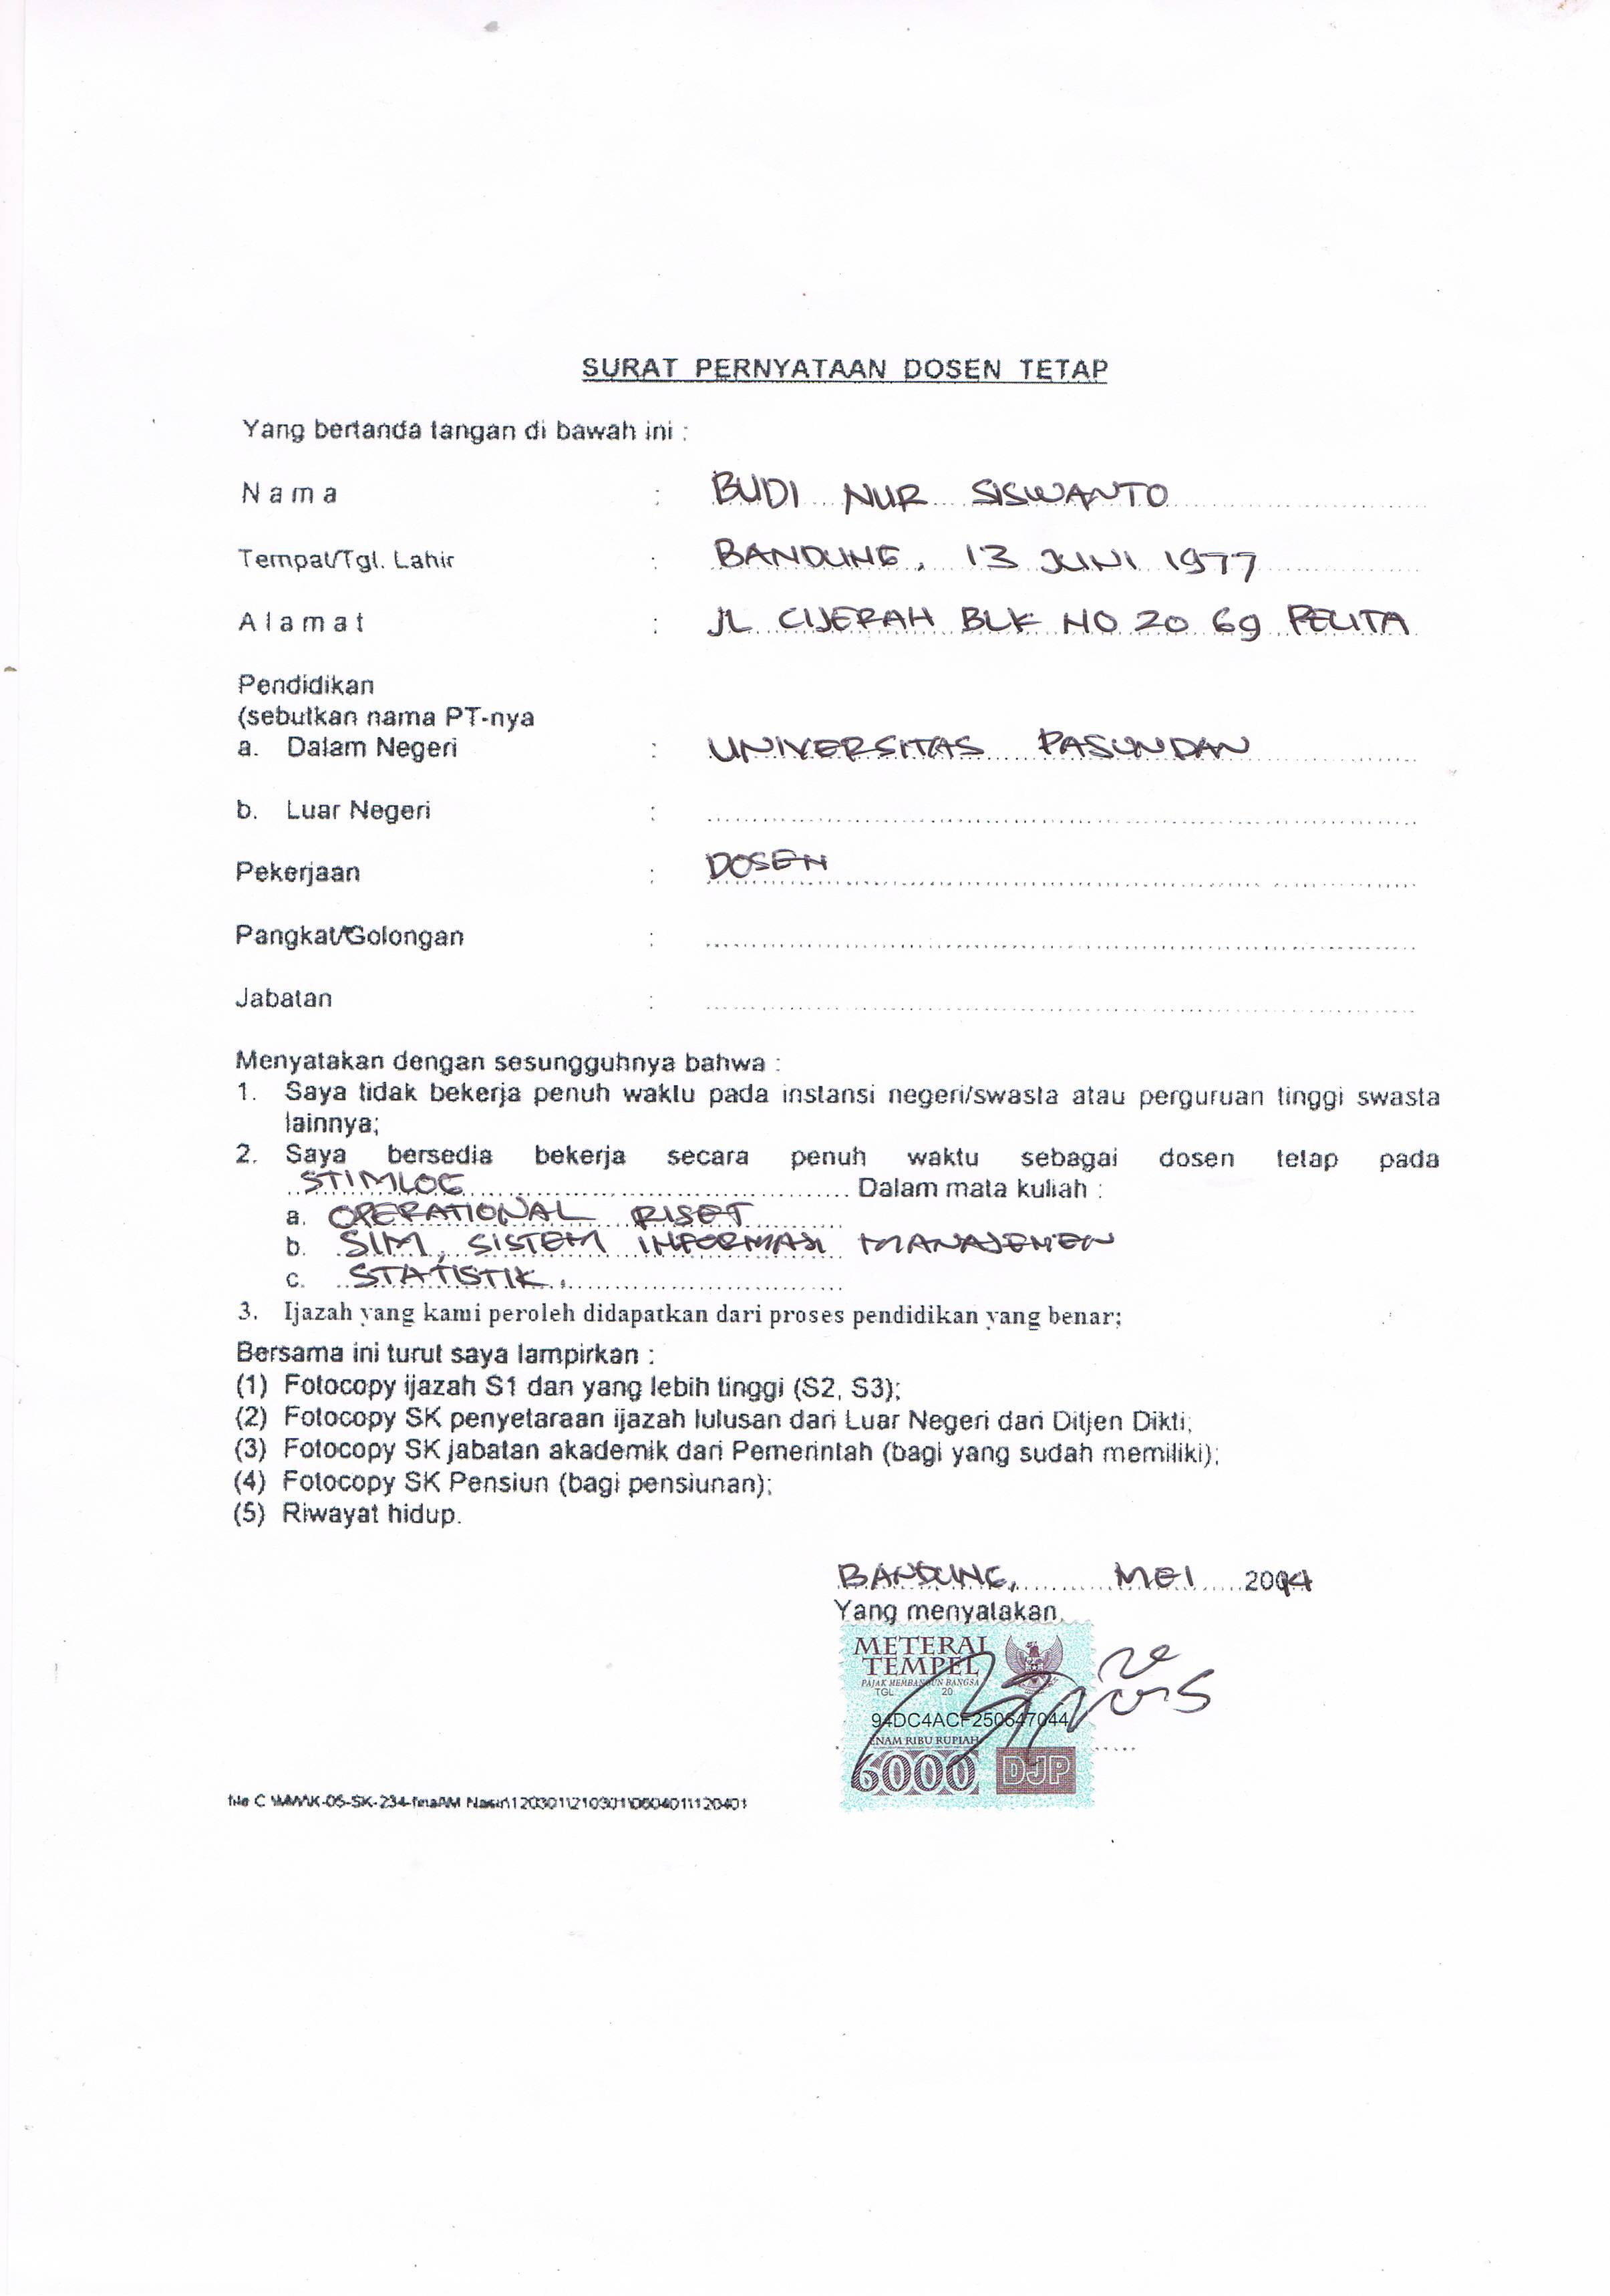 SURAT PERNYATAAN DOSEN TETAP
Yang bertanda tangan di bawah ini :
Nama : BUDI NUR SISWANTO
Tempat/Tgl. Lahir : BANDUNG, 13 JUNI 1977
Alamat : JL CIJERAH BLK NO 20 69 PELITA
Pendidikan
(sebutkan nama PT-nya
a. Dalam Negeri : UNIVERSITAS PASUNDAN
b. Luar Negeri :
Pekerjaan : DOSEN
Pangkat/Golongan :
Jabatan :
Menyatakan dengan sesungguhnya bahwa :
1. Saya tidak bekerja penuh waktu pada instansi negeri/swasta atau perguruan tinggi swasta
lainnya;
2. Saya bersedia bekerja secara penuh waktu sebagai dosen tetap pada
STIMLOG Dalam mata kuliah :
a. OPERATIONAL RISET
b. SIM, SISTEM INFORMASI MANAJEMEN
c. STATISTIK.
3. Ijazah yang kami peroleh didapatkan dari proses pendidikan yang benar;
Bersama ini turut saya lampirkan :
(1) Fotocopy ijazah S1 dan yang lebih tinggi (S2, S3);
(2) Fotocopy SK penyetaraan ijazah lulusan dari Luar Negeri dari Ditjen Dikti;
(3) Fotocopy SK jabatan akademik dari Pemerintah (bagi yang sudah memiliki);
(4) Fotocopy SK Pensiun (bagi pensiunan);
(5) Riwayat hidup.
BANDUNG, MEI 2014
Yang menyatakan,
METERAI
TEMPEL
PAJAK MEMBANGUN BANGSA
TGL. 20
94DC4ACF250647044
ENAM RIBU RUPIAH
6000 DJP